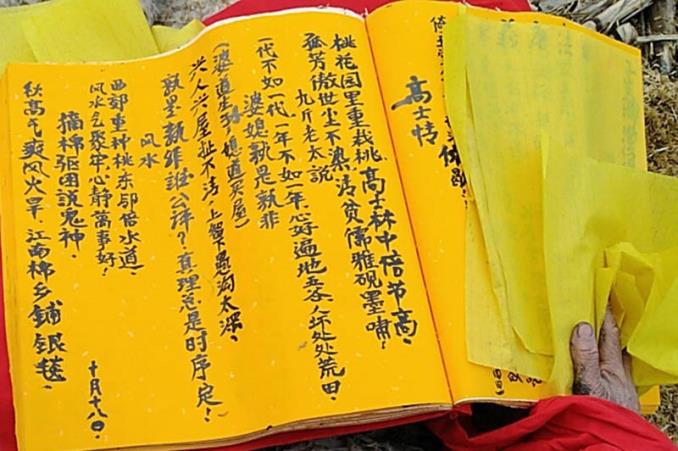 高士情
桃花园里重栽桃,高士林中倍节高,
孤芳傲世尘不染,清贫儒雅砚墨啸!
九斤老太说
一代不如一代,一年不如一年,心好遍地五谷,人坏处处荒田。
婆媳孰是孰非
(婆道生孙,媳道买屋)
兴人兴屋扯不清,上智下愚沟太深。
孰是孰非谁公评?真理总是时序定!
风水
西郊重种桃,东邻倍水道,
风水气聚牢,心静万事好!
摘棉驱困说鬼神,
秋高气爽风火旱,江南棉乡铺银毯。
十月十八日。